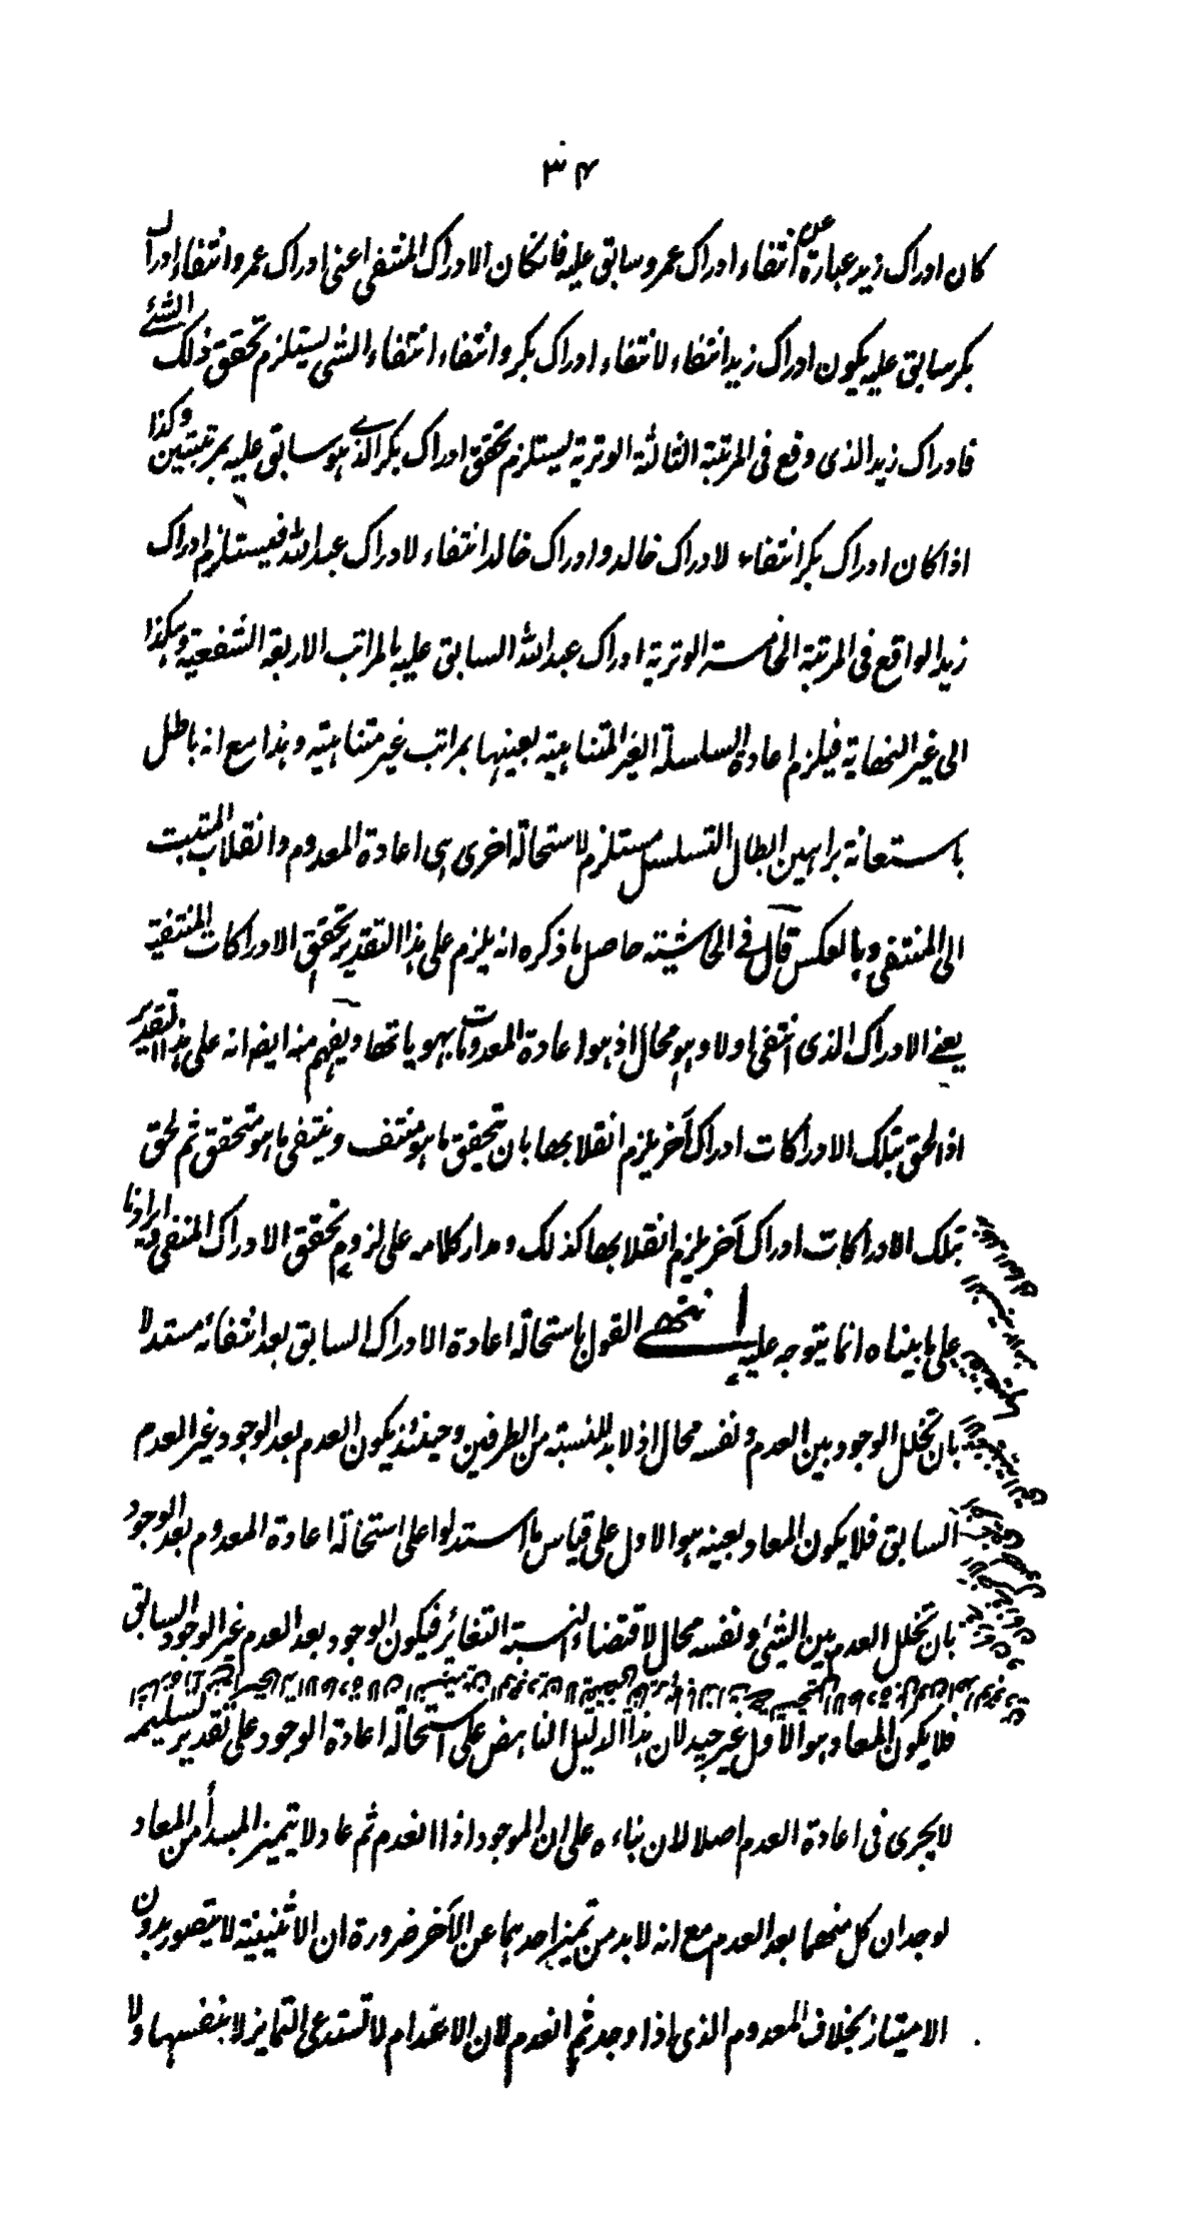 ٣٤
كان ادراك زيد عبارة عن انتفاء ادراك عمرو سابق عليه فانكان الادراك المنتفى اعنى ادراك عمرو انتفاء ادراك
بكر سابق عليه يكون ادراك زيد انتفاء لانتفاء ادراك بكر وانتفاء انتفاء الشئ يستلزم تحقق ذلك الشئ
فادراك زيد الذى وقع فى المرتبة الثالثة الوترية يستلزم تحقق ادراك بكر الذى هو سابق عليه بمرتبتين وكذا
اذا كان ادراك بكر انتفاء لادراك خالد وادراك خالد انتفاء لادراك عبد الله فيستلزم ادراك
زيد الواقع فى المرتبة الخامسة الوترية ادراك عبد الله السابق عليه بالمراتب الاربعة الشفعية وهكذا
الى غير النهاية فيلزم اعادة السلسلة الغير المتناهية بعينها بمراتب غير متناهية وهذا مع انه باطل
باستعانة براهين ابطال التسلسل مستلزم لاستحالة اخرى هى اعادة المعدوم وانقلاب المثبت
الى المنتفى وبالعكس قال فى الحاشية حاصل ما ذكره انه يلزم على هذا التقدير تحقق الادراكات المنتفية
يعنے الادراك الذى انتفى اولا وهو محال اذ هو اعادة المعدومات بهوياتها ويفهم منه ايضا انه على هذا التقدير
اذا لحق بتلك الادراكات ادراك آخر يلزم انقلابها بان تحقق ما هو منتف وينتفى ما هو متحقق ثم لحق
بتلك الادراكات ادراك آخر يلزم انقلابها كذلك ومدار كلامه على لزوم تحقق الادراك المنفى وايرادنا
على ما بيناه انما يتوجه عليه انتهے القول باستحالة اعادة الادراك السابق بعد انتفائه مستدلا
بان تخلل الوجود بين العدم ونفسه محال اذ لا بد للنسبة من الطرفين وحينئذ يكون العدم بعد الوجود غير العدم
السابق فلا يكون المعاد بعينه هو الاول على قياس ما استدلوا على استحالة اعادة المعدوم بعد الوجود
بان تخلل العدم بين الشئ ونفسه محال لاقتضاء النسبة التغائر فيكون الوجود بعد العدم غير الوجود السابق
فلا يكون المعاد هو الاول غير جيد لان هذا الدليل الناهض على استحالة اعادة الوجود على تقدير تسليمه
لا يجرى فى اعادة العدم اصلا لان بناءه على ان الموجود اذا انعدم ثم عاد لا يتميز المبدأ من المعاد
لوجدان كل منهما بعد العدم مع انه لا بد من تميز احدهما عن الآخر ضرورة ان الاثنينية لا يتصور بدون
الامتياز بخلاف المعدوم الذى اذا وجد ثم انعدم لان الاعدام لا تستدعى التمايز لا بنفسها ولا